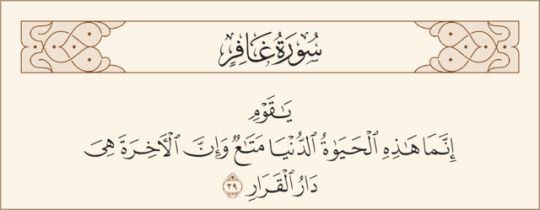 سُورَةُ غَافِرٍ
يَـٰقَوْمِ
إِنَّمَا هَـٰذِهِ ٱلْحَيَوٰةُ ٱلدُّنْيَا مَتَـٰعٌ وَإِنَّ ٱلْـَٔاخِرَةَ هِىَ
دَارُ ٱلْقَرَارِ ٣٩